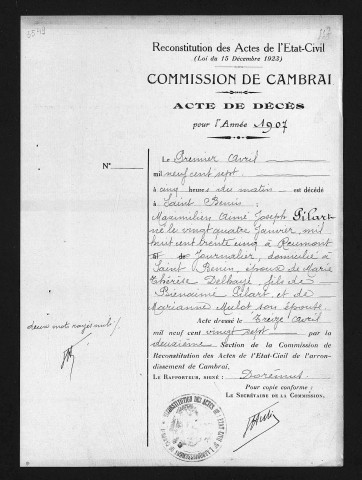 Reconstitution des Actes de l'Etat-Civil
(Loi du 15 Décembre 1923)
COMMISSION DE CAMBRAI
ACTE DE DÉCÈS
pour l'Année 1907
N°
Le Premier Avril
mil neuf cent sept
à cinq heures du matin est décédé
à Saint Benin
Maximilien Aimé Joseph Pilart
né le vingt quatre Janvier, mil
huit cent trente cinq à Reumont
Journalier, domicilié à
Saint Benin, époux de Marie
Thérèse Delhaye, fils de
Pilart et de
Marianne Mulot son épouse
deux mots rayés nuls
Acte dressé le Treize Avril
mil neuf cent vingt sept par la
deuxième Section de la Commission de
Reconstitution des Actes de l'Etat-Civil de l'arron-
dissement de Cambrai.
Le Rapporteur, signé : Dorémus
Pour copie conforme :
Le Secrétaire de la Commission,